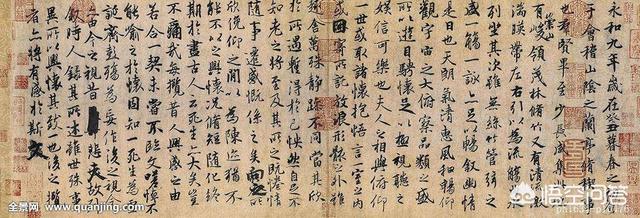 永和九年歲在癸丑暮春之初會
于會稽山陰之蘭亭脩禊事
也羣賢畢至少長咸集此地
有崇山峻領茂林脩竹又有清流激
湍暎帶左右引以為流觴曲水
列坐其次雖無絲竹管弦之
盛一觴一詠亦足以暢敘幽情
是日也天朗氣清惠風和暢仰
觀宇宙之大俯察品類之盛
所以遊目騁懷足以極視聽之
娛信可樂也夫人之相與俯仰
一世或取諸懷抱悟言一室之內
或因寄所託放浪形骸之外雖
趣舍萬殊靜躁不同當其欣
於所遇蹔得於己怏然自足不
知老之將至及其所之既惓情
隨事遷感慨係之矣向之所
欣俛仰之閒以為陳迹猶不
能不以之興懷況脩短隨化終
期於盡古人云死生亦大矣豈
不痛哉每攬昔人興感之由
若合一契未嘗不臨文嗟悼不
能喻之於懷固知一死生為虛
誕齊彭殤為妄作後之視今
亦由今之視昔悲夫故列
敘時人錄其所述雖世殊事
異所以興懷其致一也後之攬
者亦將有感於斯文
全景网 www.quanjing.com
悟空问答